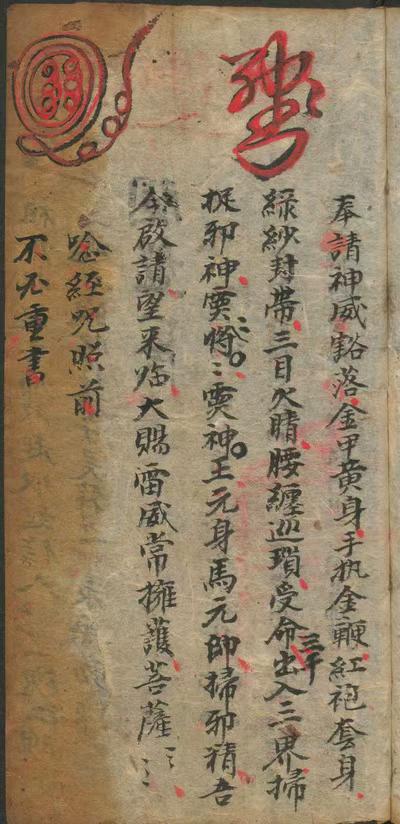 奉請神威豁落金甲黄身手执金鞭紅袍套身
緑紗封帶三目火睛腰纏巡瑣受命出入三界掃
三千
捉邪神灵將〻灵神王元身馬元帅掃邪精吾
今啟請望来临大賜雷威常擁護菩薩〻〻
念經咒照前
不必重書